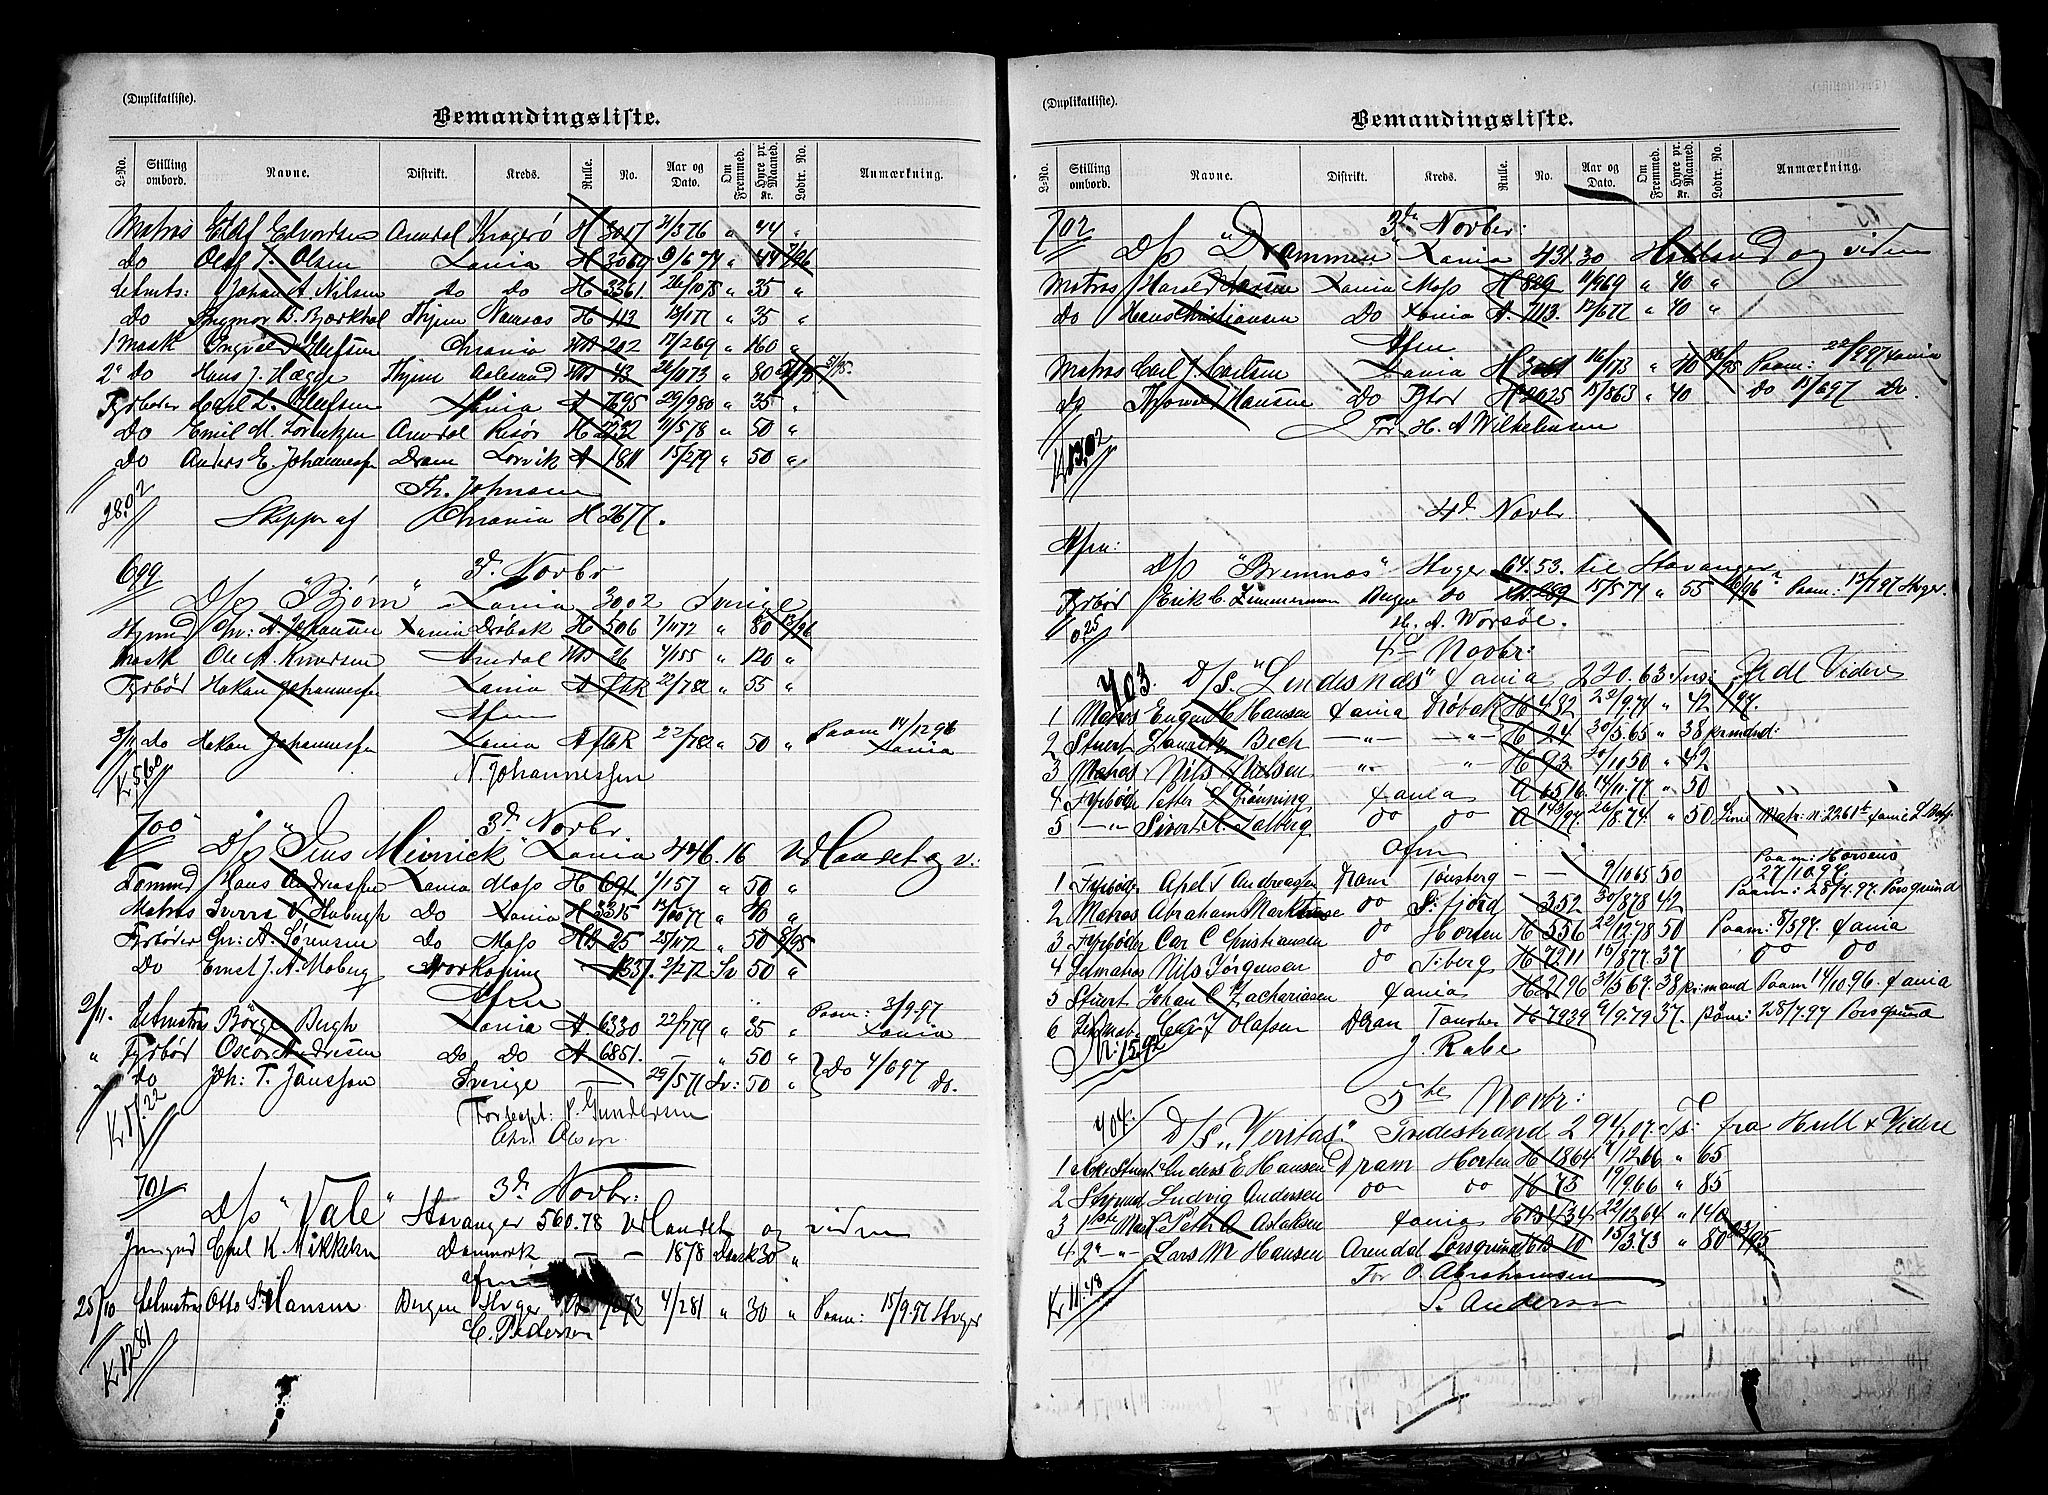 (Duplikatliste).
Bemandingsliste.
L-No. Stilling ombord. Navne. Distrikt. Kreds. Rulle. No. Aar og Dato. Om Fremmed. Hyre pr. Maaned. Kr. Lodtr. No. Anmærkning.
Matros Edvardsen Arendal Kragerø H 3017 21/3 76 " 44 "
Do Olaf T. Olsen Xania H 3069 9/6 74 " 44 7/96
Letmts: Johan A. Nilsen Do Do H 3361 26/10 78 " 35 "
Do Ingmar B. Bjerkhol Thjem Namsos H 113 " 35 "
1 Mask Ingvald Ellefsen Chrania MB 202 17/2 69 " 160 "
2" Do Hans J. Hægge Thjem Aalesund MB 43 26/11 73 " 80
Fyrbøder Carl L. Olefsen Xania A 7695 29/9 80 " 35 "
Do Emil M. Lorentzen Arendal Risør H 2232 11/5 78 " 50 "
Do Anders E. Johannessen Dram Larvik A 1811 15/2 79 " 50 "
Th. Johnsen
28.02 Skipper af Chrania H 2677.
699 3d. Novbr
D/s "Bjørn" Xania 3002 Sverige
Styrmd Chr: A. Johansen Xania Drøbak H 506 7/11 72 " 80 13/96
Mask Ole A. Knudsen Arendal MB 26 4/1 55 " 120 "
Fyrbød Hakan Johannessen Xania A fbR 22/7 82 " 55 "
Afm
3/11 do Hakan Johannessen Xania A fbR 22/7 82 " 50 " Paam 14/12 96 Xania
Kr 5.60 N. Johannessen
700 3d. Novbr
D/s "Jens Meinick" Xania 446.16 Udlandet og v:
Tømmd Hans Andreassen Xania Moss H 691 1/1 57 " 50 "
Matros Sverre V. Haabugh Do Xania H 3315 13/10 77 " 40 "
Fyrbøder Chr: A. Sørensen Do Moss HB 25 25/11 72 " 50 8/95
Do Ernst J. A. Moberg Norkøping 1337. 2/2 72 Sv 50 "
Afm
2/11. Letmatros Börge Bergh Xania A. 6330 22/7 79 " 35 " Paam: 3/9.97 Xania
" Fyrbød Oscar Andresen Do Do A. 6851. — " 50 " Do 4/6 97 Do.
" Do Joh: T. Jansson Sverige — 29/5 71 Sv: 50 "
Kr 17.22 For Capt: P. Gundersen
Chr. Olsen
701 3d. Novbr:
D/s "Vale" Stavanger 560.78 Udlandet og viden
Jungmd Carl K. Mikkelsen Danmark — — 1878 Dansk 30 "
Afm
25/10 Letmatros Otto S. Hansen Bergen Stvger 1073 4/2 81 " 30 " Paam: 15/9.97 Stvger
Kr 17.81 C. Pedersen
(Duplikatliste).
Bemandingsliste.
L-No. Stilling ombord. Navne. Distrikt. Kreds. Rulle. No. Aar og Dato. Om Fremmed. Hyre pr. Maaned. Kr. Lodtr. No. Anmærkning.
702 3die Novbr:
D/s "Drammen" Xania 431.30 Holland og viden
Matros Harald Hansen Xania Moss H 829 11/9 69 " 40 "
Do Hans Christiansen Do Xania A. 7113. 12/6 77 " 40 "
Afm
Matros Carl J. Carlsen Xania H 16/1 73 " 40 26/95 Paam: 22/9 97 Xania
do Thorvald Hansen Do Ftstad H 2025 13/8 63 " 40 Do 15/6 97 Do.
For H. A Wilhelmsen
Kr 13.02
4d. Novbr.
Afm:
D/s "Bremnæs" Stvger 64.53. til Stavanger
Fyrbød Erik C. Zimmerman Bergen do 289 15/5 74 " 55 6/96 Paam: 13/7 97 Stvger.
10.25 H. A. Worsøe.
4d Novbr:
703. D/s. "Lindesnæs" Xania 220.63 Tns: Udl Videre
1 Matros Eugen H. Hansen Xania Drøbak H 482 22/9.74 " 42 1/97.
2 Stuert Lauritz Bech —"— "— H 24 30/5.65 " 38 pr. maaned:
3 Matros Nils Nielsen —"— "— H 93 20/10 50 " 42
4 Fyrbøder Petter L. Grønning Xania A 6516 14/11.77 " 50
5 —"— Sivert A. Salberg do do A 143/97. 26/8.74 " 50 Matr: n. 2261 Xania
Afm
1 Fyrbøder Axel T Andreasen Dram Tønsberg — — 9/10 65 50 Paam: Horsens 27/10.97
2 Matros Abraham Marktusse do S: fjord 352 30/8 78 42 Paam: 28/7.97. Porsgrund
3 Fyrbøder Car C Christiansen do Horten H 556 22/12.78 50 Paam: 8/5 97. Xania
4 Letmatros Nils Jörgensen do T: berg H 7211 15/8 77. 37 do do
5 Stuert Johan C Zachariasen Xania H 2196 31/5 67. 38 pr. maaned Paam 14/10.96. Xania
6 Letmat. Carl F Olafsen Dram Tønsber H 7939 9/9.79 37. Paam: 28/7.97 Porsgrund
Kr: 15.92 J. Rabe
5te Novbr:
704: D/s "Veritas" Tvedestrand 294.07. T/s: fra Hull & Videre
1 Kok & Stuert Anders E Hansen Dram Horten H 1864 7/12.66 " 65
2 Styrmd Ludvig Andersen do do H 75 19/9 66 " 85
3 1ste Mask Peter A Aslaksen Xania HB 434 22/12.64 " 140
4 2" —"— Lars M Hansen Arendal Porsgrund HB 10 15/3.73 " 80 23/95
For O. Abrahamsen
Kr 11.48 S. Andersen